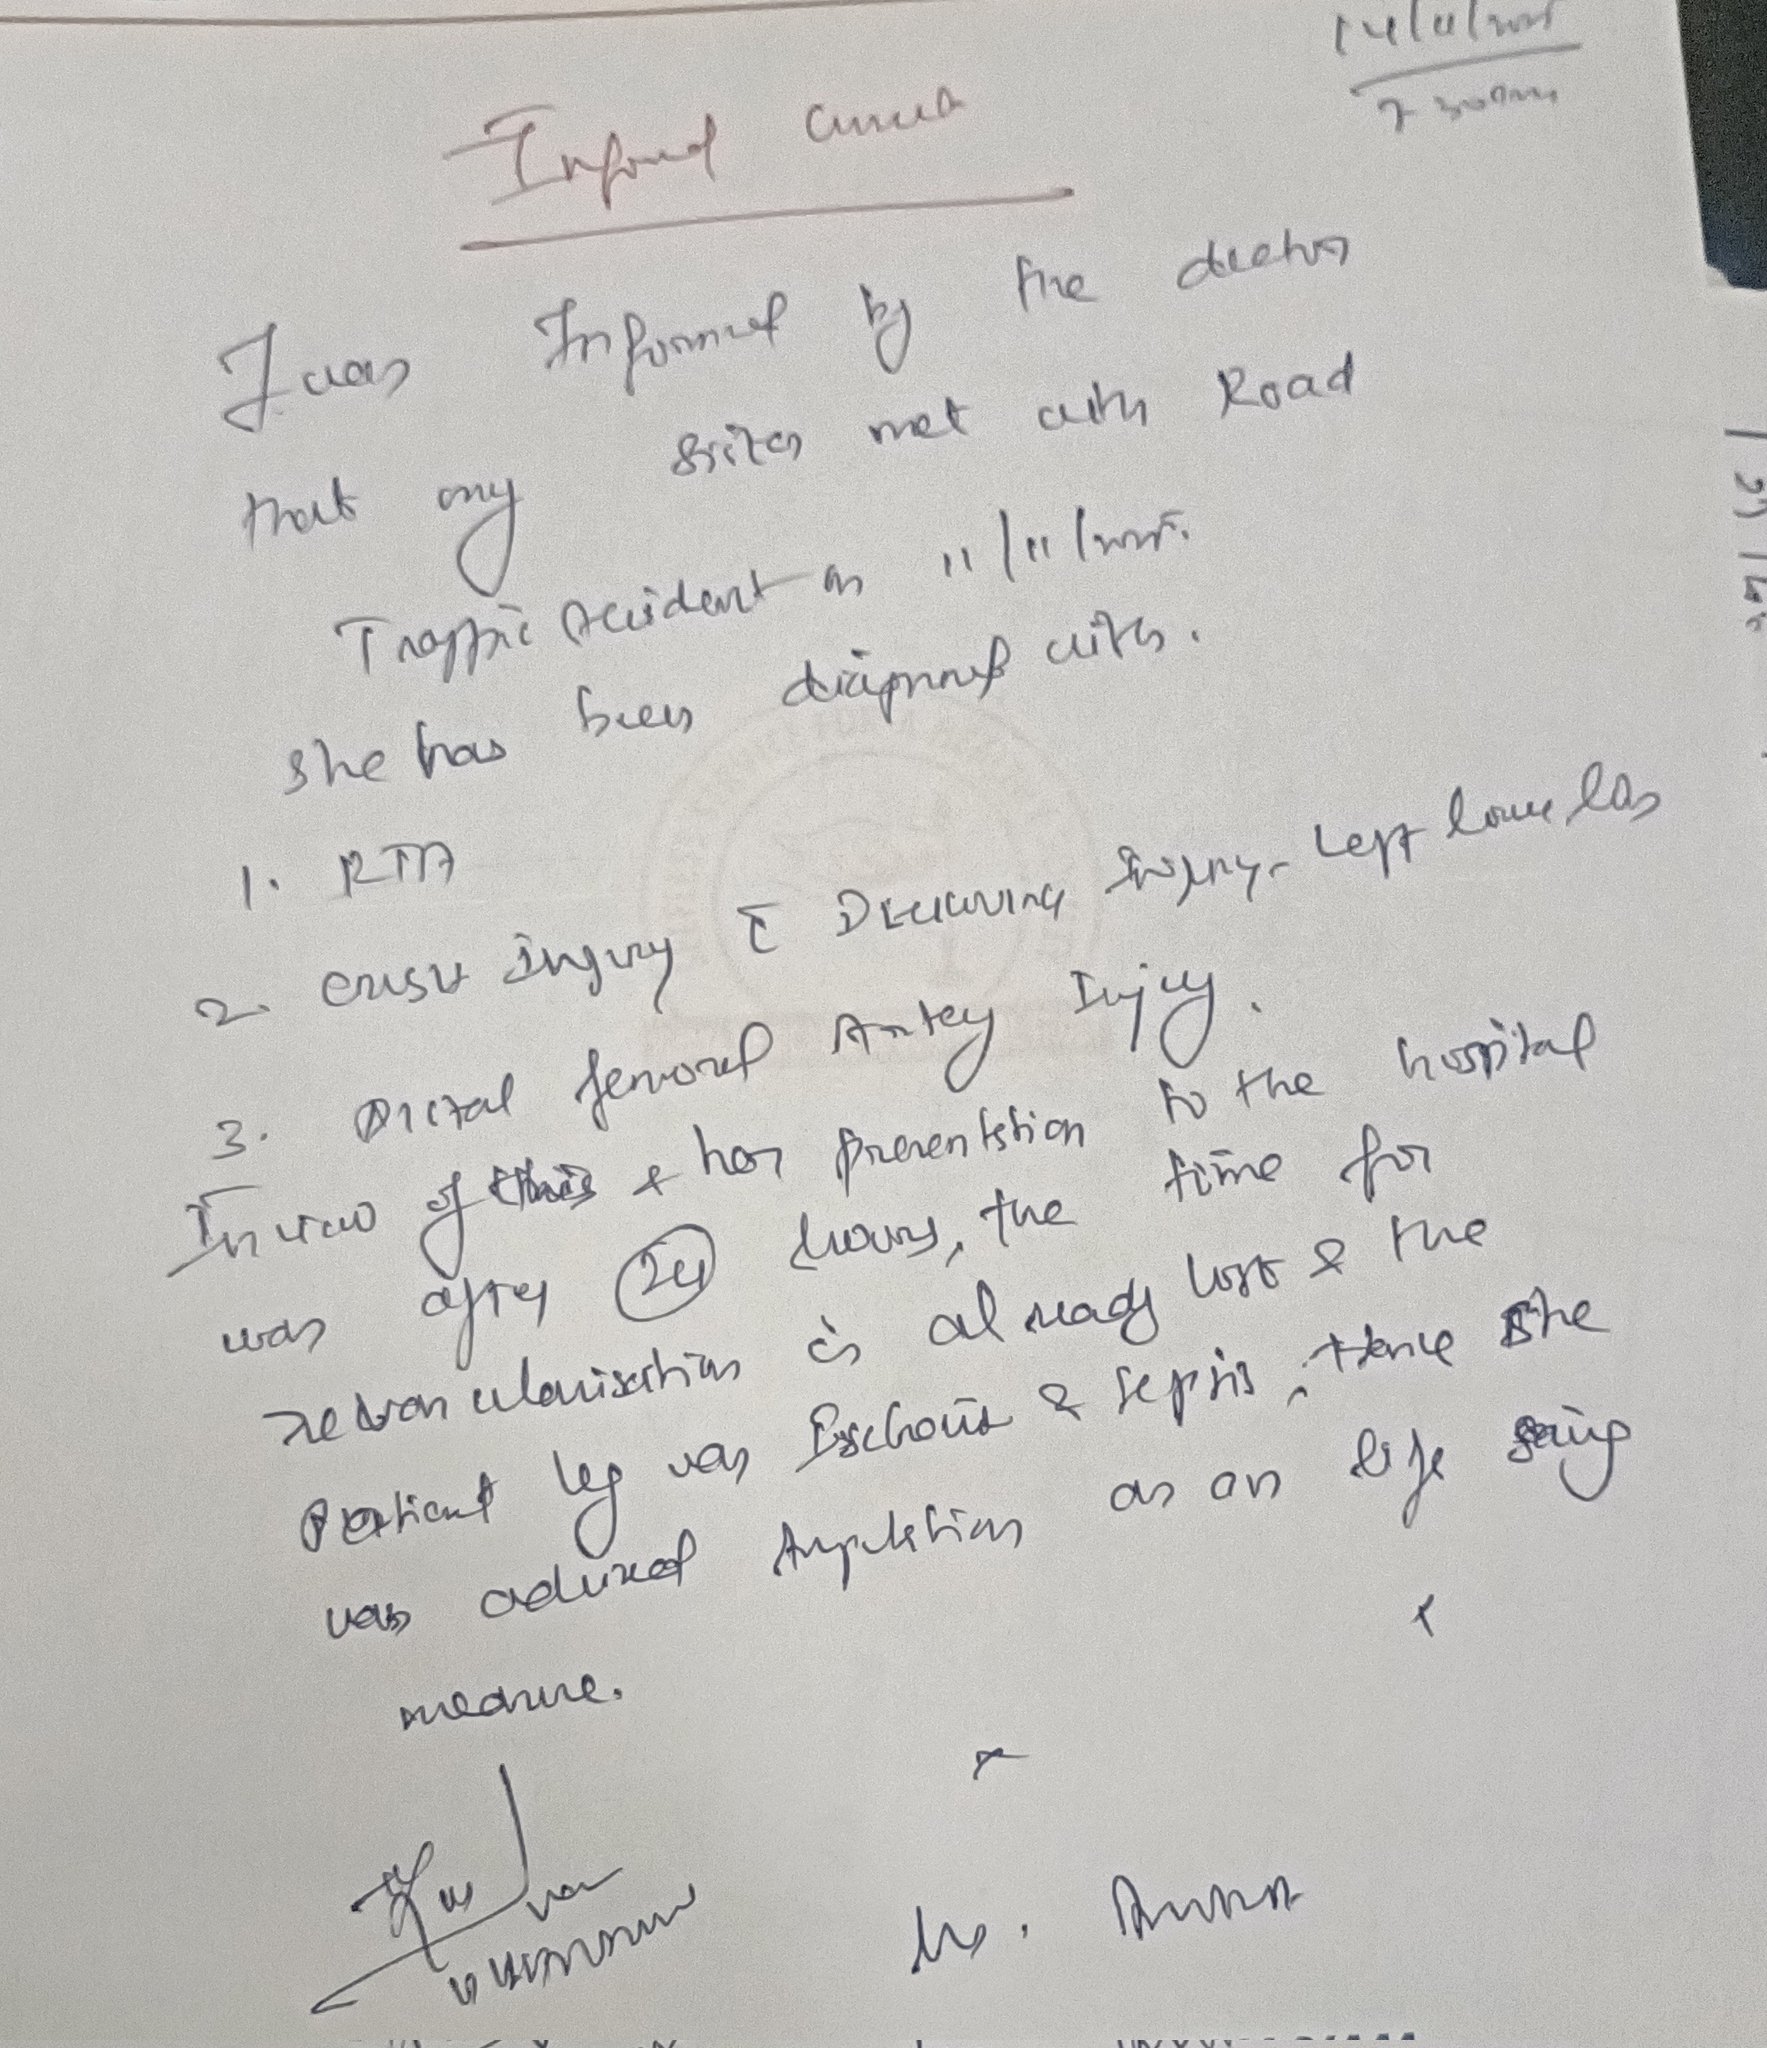 14/11/
7:30am
Informed consent
I was Informed by the doctor
that my sister met with Road
Traffic Accident on 11/11/
She has been diagnosed with.
1. RTA
2. crush Injury c̄ Degloving Injury - Left lower limb
3. Distal femoral Artery Injury.
In view of this & her presentation to the hospital
was after 24 hours, the time for
revascularisation is already lost & the
Patient leg was Ischaemic & sepsis, Hence she
was advised Amputation as an life saving
measure.